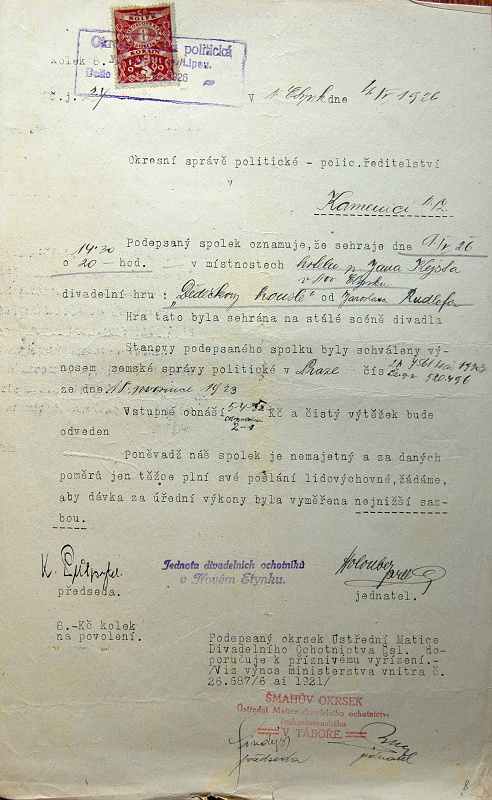 Kolek 8.
KOLEK
KORUN
1919
Okresní politická
Došlo 1926
Č.j. 24
V N. Etynk dne 1926
Okresní správě politické - polic.ředitelství
v
Kamenici n.L.
Podepsaný spolek oznamuje,že sehraje dne 26
14·30
o 20 hod. v místnostech hotelu p. Jana Hejsta
v Nov. Etynku
divadelní hru : „Dědečkovy housle" od Jaroslava Rudlofa
Hra tato byla sehrána na stálé scéně divadla
Stanovy podepsaného spolku byly schváleny vý-
nosem zemské správy politické v Praze čís
520.496
ze dne 18. prosince 1923
Vstupné obnáší 5-4-3 Kč a čistý výtěžek bude
odpoledne
2-1
odveden
Poněvadž náš spolek je nemajetný a za daných
poměrů jen těžce plní své poslání lidovýchovné,žádáme,
aby dávka za úřední výkony byla vyměřena nejnižší saz-
bou.
Jednota divadelních ochotníků
v Novém Etynku.
K.
předseda.
Holoubek
jednatel.
8.-Kč kolek
na povolení.
Podepsaný okrsek Ústřední Matice
Divadelního Ochotnictva Čsl. do-
poručuje k příznivému vyřízení.-
/Viz výnos ministerstva vnitra č.
26.687/6 ai 1921/
ŠMAHŮV OKRSEK
Ústřední Matice divadelního ochotnictva
československého
V TÁBOŘE.
předseda
jednatel
8